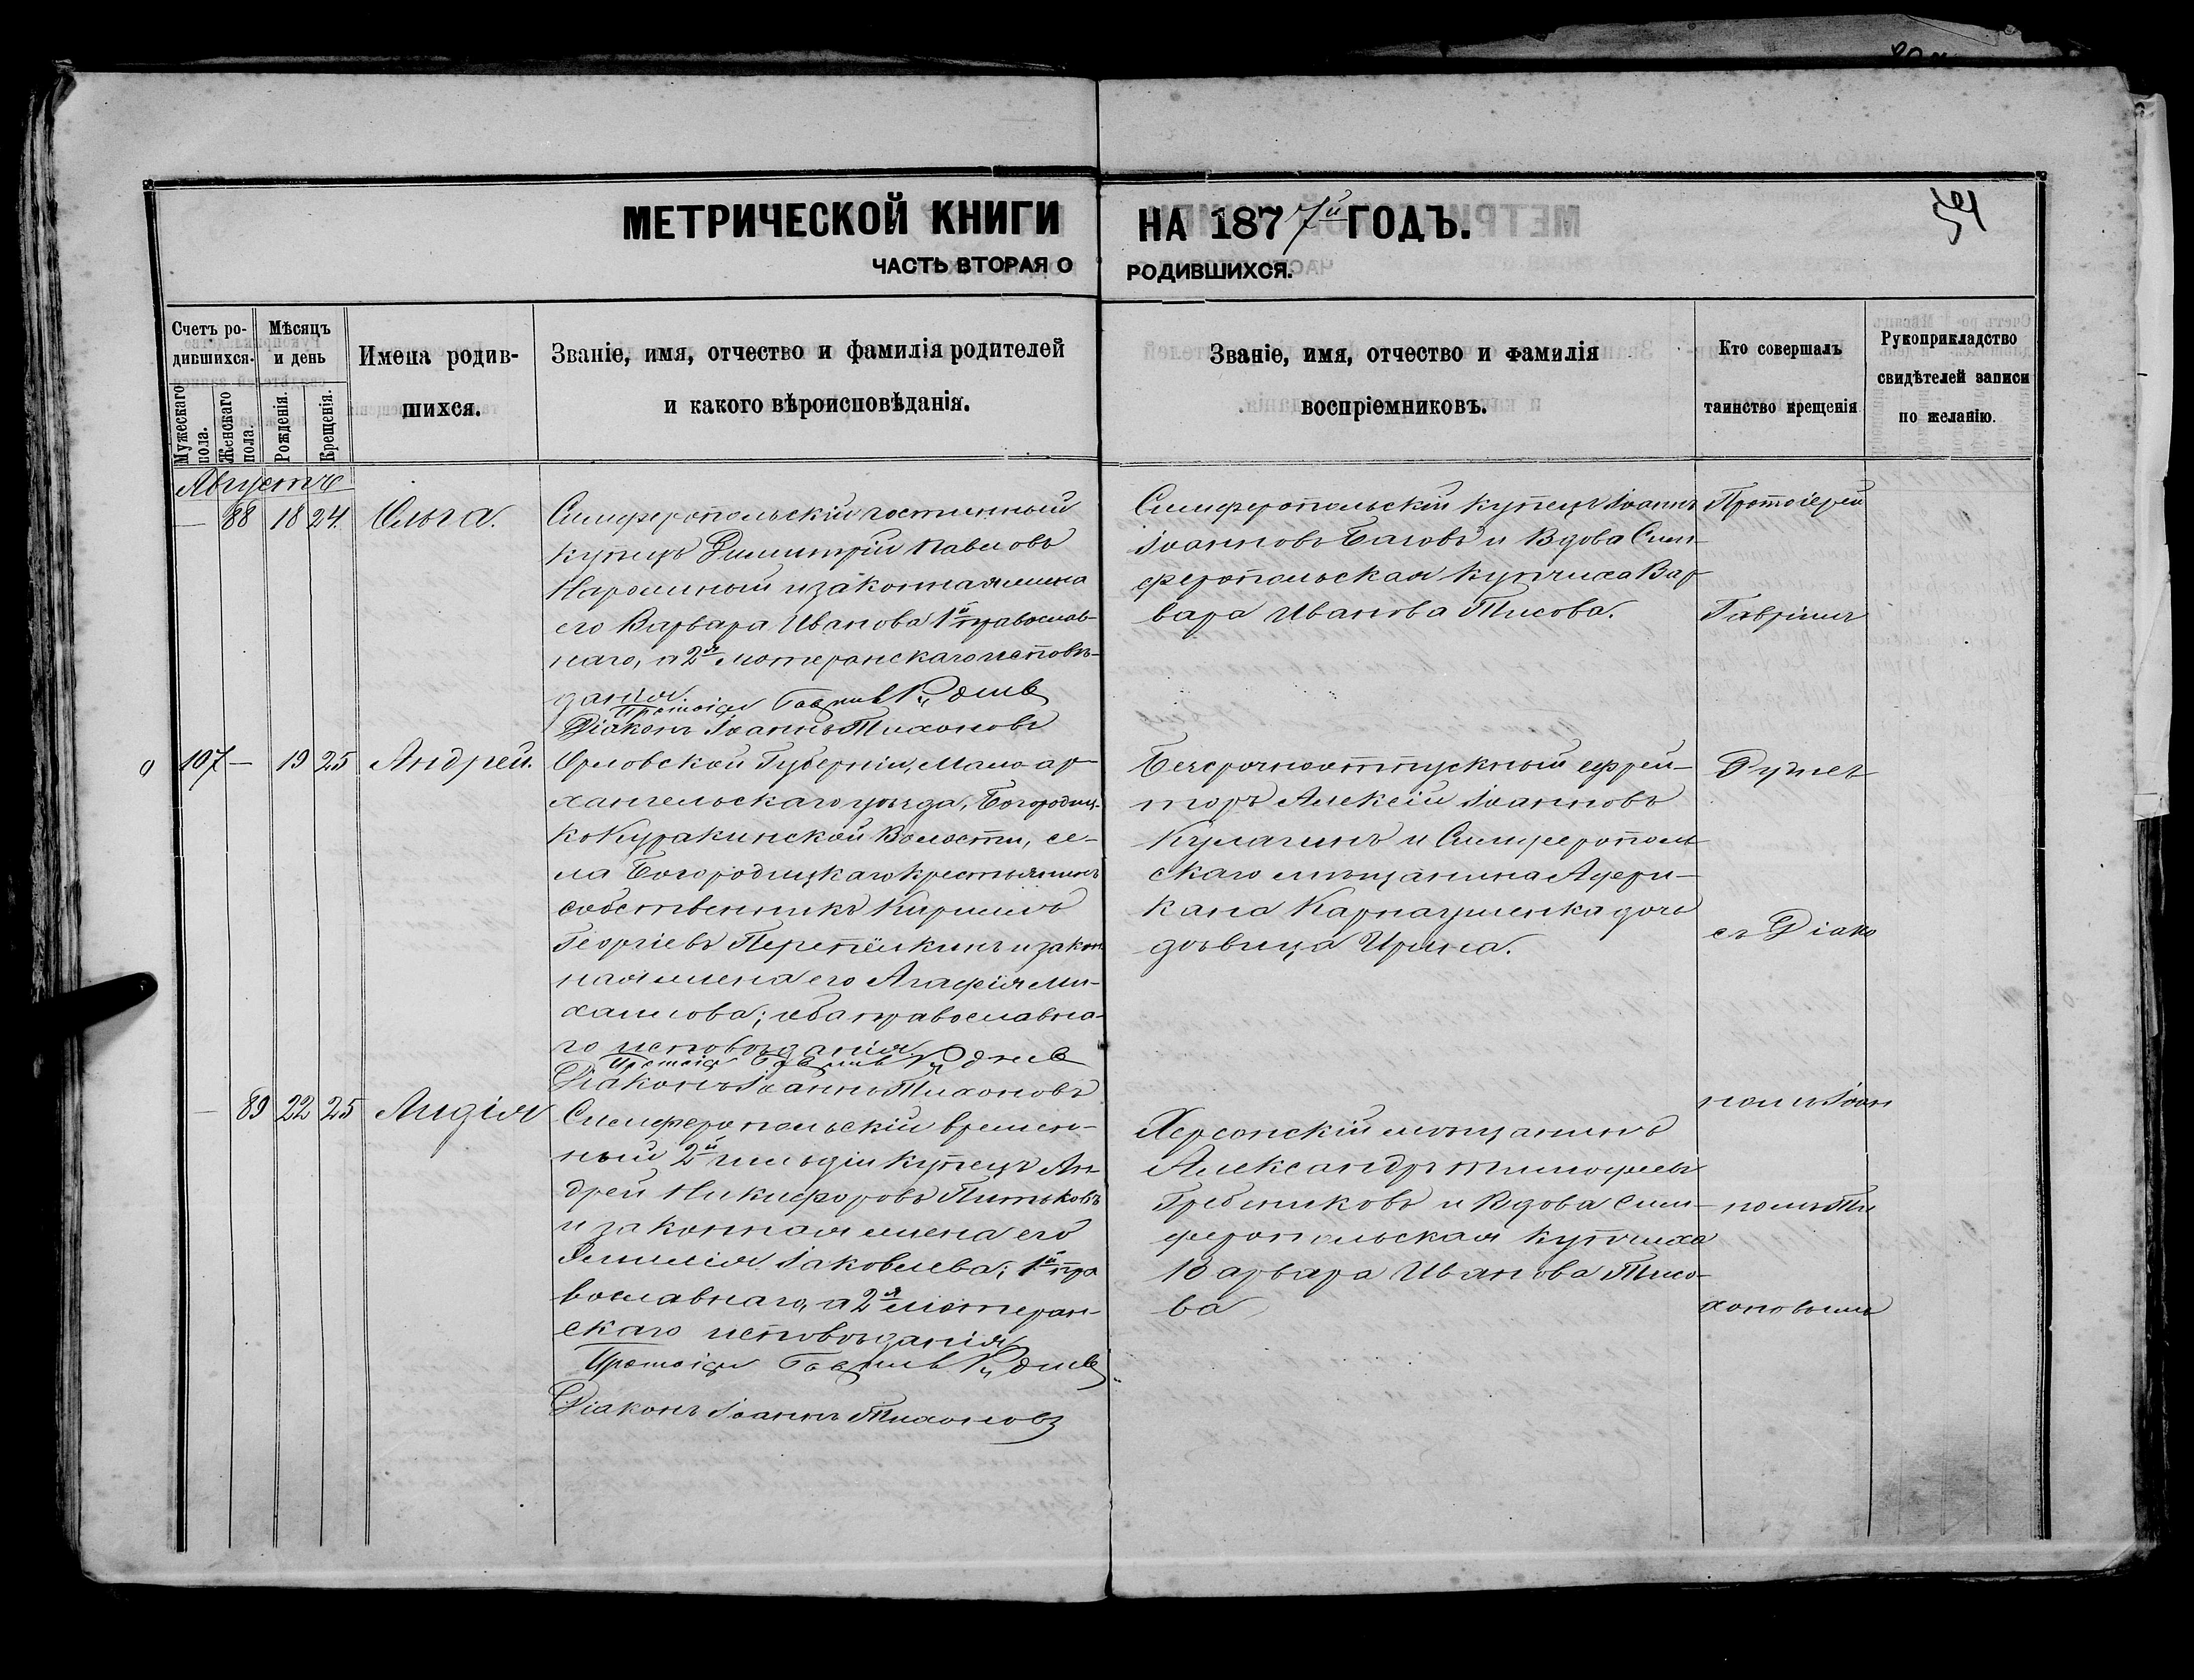 МЕТРИЧЕСКОЙ КНИГИ НА 1877й ГОДЪ.
ЧАСТЬ ВТОРАЯ О РОДИВШИХСЯ.
Счетъ родившихся.
Мужескаго пола.
Женскаго пола.
Мѣсяцъ и день
Рожденія.
Крещенія.
Имена родив-
шихся.
Званіе, имя, отчество и фамилія родителей
и какого вѣроисповѣданія.
Званіе, имя, отчество и фамилія
воспріемниковъ.
Кто совершалъ
таинство крещенія
Рукоприкладство
свидѣтелей записи
по желанію.
Августъ
— 88 18 24. Ольга.
Симферопольскій
купецъ Димитрій Павловъ
и законная жена
его Варвара Иванова 1й православ-
наго, а 2я лютеранскаго исповѣ-
данія.
Протоіерей
Діаконъ Іоаннъ Тихоновъ
Симферопольскій купецъ Іоаннъ
Іоанновъ и Вдова Сим-
феропольская купчиха Вар-
вара Иванова
Протоіерей
Гавріилъ
107 — 19 25 Андрей.
Орловской Губерніи, Мало-ар-
хангельскаго уѣзда, Богородиц-
ко Куракинской Волости, се-
ла Богородицкаго крестьянинъ
собственникъ Кириллъ
Георгіевъ Перепёлкинъ и закон
ная жена его Агафія Ми-
хаилова; оба православна-
го исповѣданія.
Протоіерей
Діаконъ Іоаннъ Тихоновъ
Безсрочноотпускный ефрей-
торъ Алексій Іоанновъ
Кулагинъ и Симферополь
скаго мѣщанина
дочь
дѣвица Ирина.
съ Діако
— 89 22 25 Лидія
Симферопольскій времен-
ный 2й гильдіи купецъ Ан-
дрей Никифоровъ
и законная жена его
Эмилія Іаковлева; 1й пра
вославнаго, а 2я лютеран-
скаго исповѣданія
Протоіерей
Діаконъ Іоаннъ Тихоновъ
Херсонскій мѣщанинъ
Александръ Тимофеевъ
Гребенниковъ и Вдова Сим-
феропольская купчиха
Варвара Иванова
номъ Іоан
номъ Ти
хоновымъ